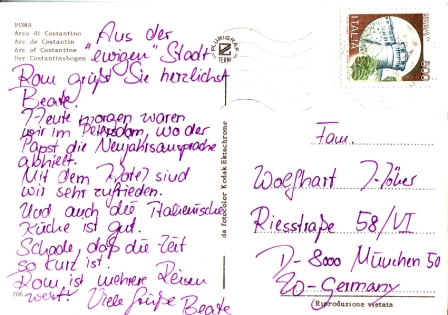 ROMA
Arco di Costantino
Arc de Constantin
Arc of Constantine
Der Costantinsbogen
Aus der
"ewigen" Stadt
Rom grüßt Sie herzlichst
Beate.
Heute morgen waren
wir im Petersdom, wo der
Papst die Neujahrsansprache
abhielt.
Mit dem Hotel sind
wir sehr zufrieden.
Und auch die Italienische
Küche ist gut.
Schade, daß die Zeit
so kurz ist.
Rom ist mehrere Reisen
wert! Viele Grüße Beate
206
PLURIGRAF
TERNI
da fotocolor Kodak Ektachrome
ITALIA
500
Fam.
Wolfhart
Riesstraße 58/VI
D-8000 München 50
Germany
Riproduzione vietata